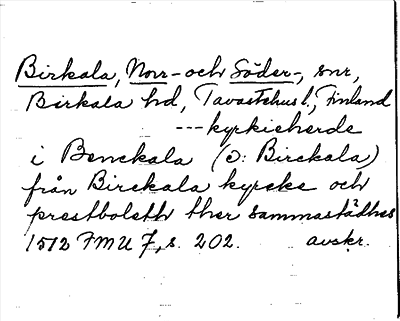 Birkala, Norr- och Söder-, snr,
Birkala hd, Tavastehus l., Finland
---kyrkieherde
i Benckala (ɔ: Birckala)
från Birckala kyrcke och
prestboleth ther sammastädhes
1512 FMU 7, s. 202. avskr.